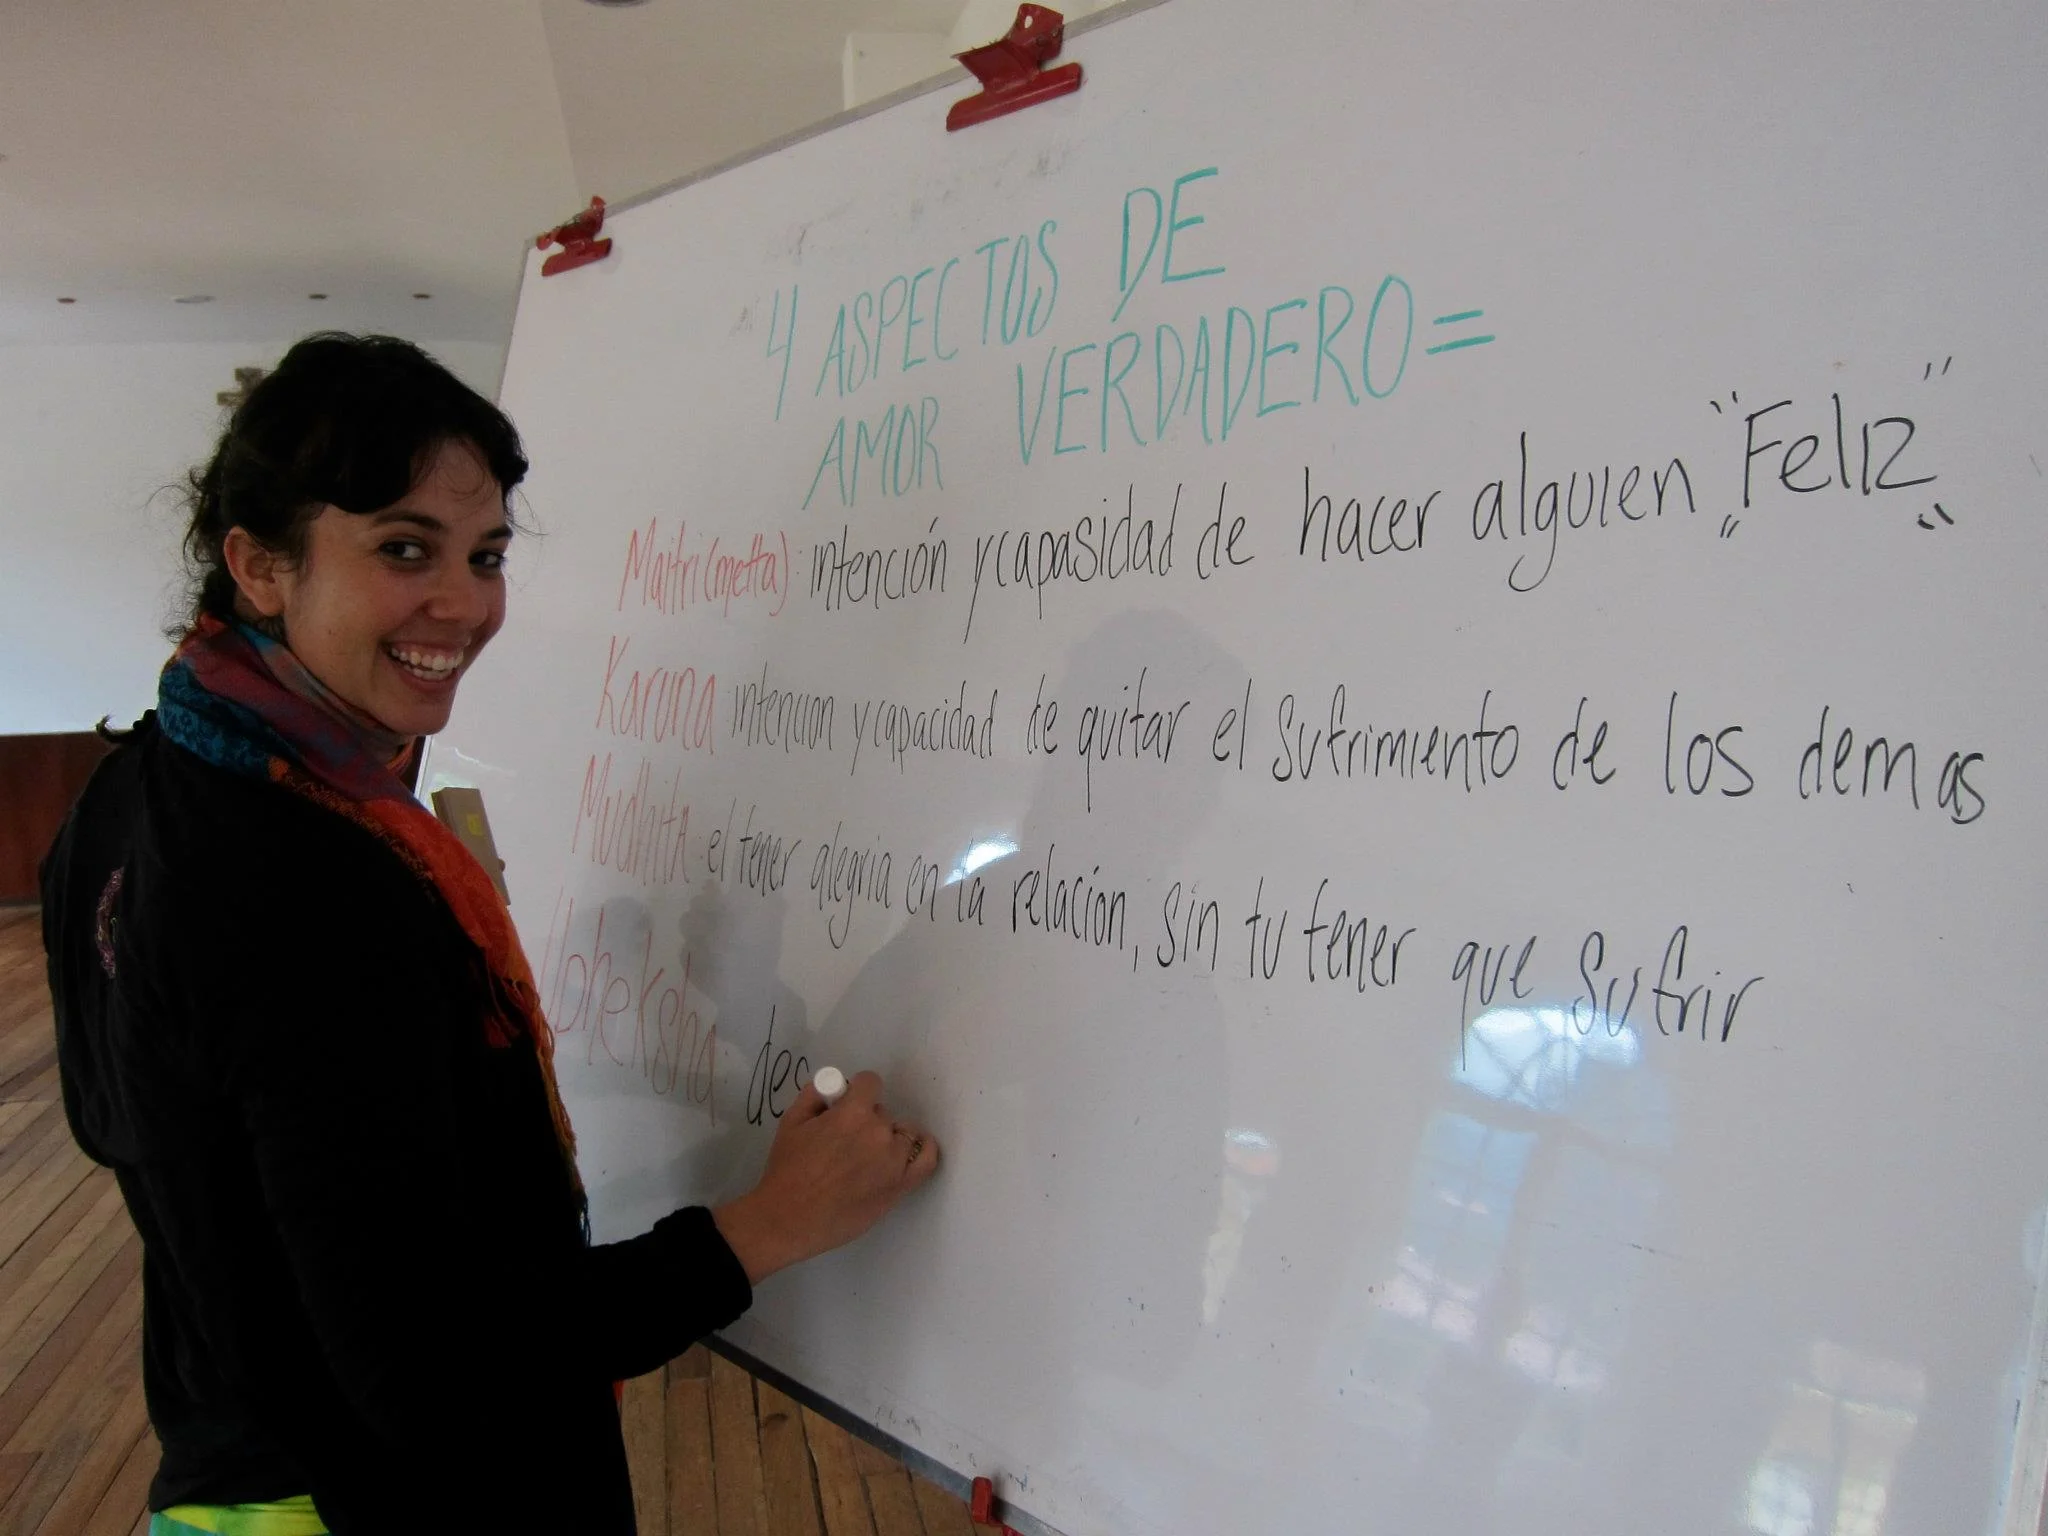 4 ASPECTOS DE
AMOR VERDADERO =
Maitri (metta): intención y capasidad de hacer alguien "Feliz"
Karuna: intencion y capacidad de quitar el sufrimiento de los demas
Mudhita: el tener alegria en la relación, sin tu tener que sufrir
Upheksha: des